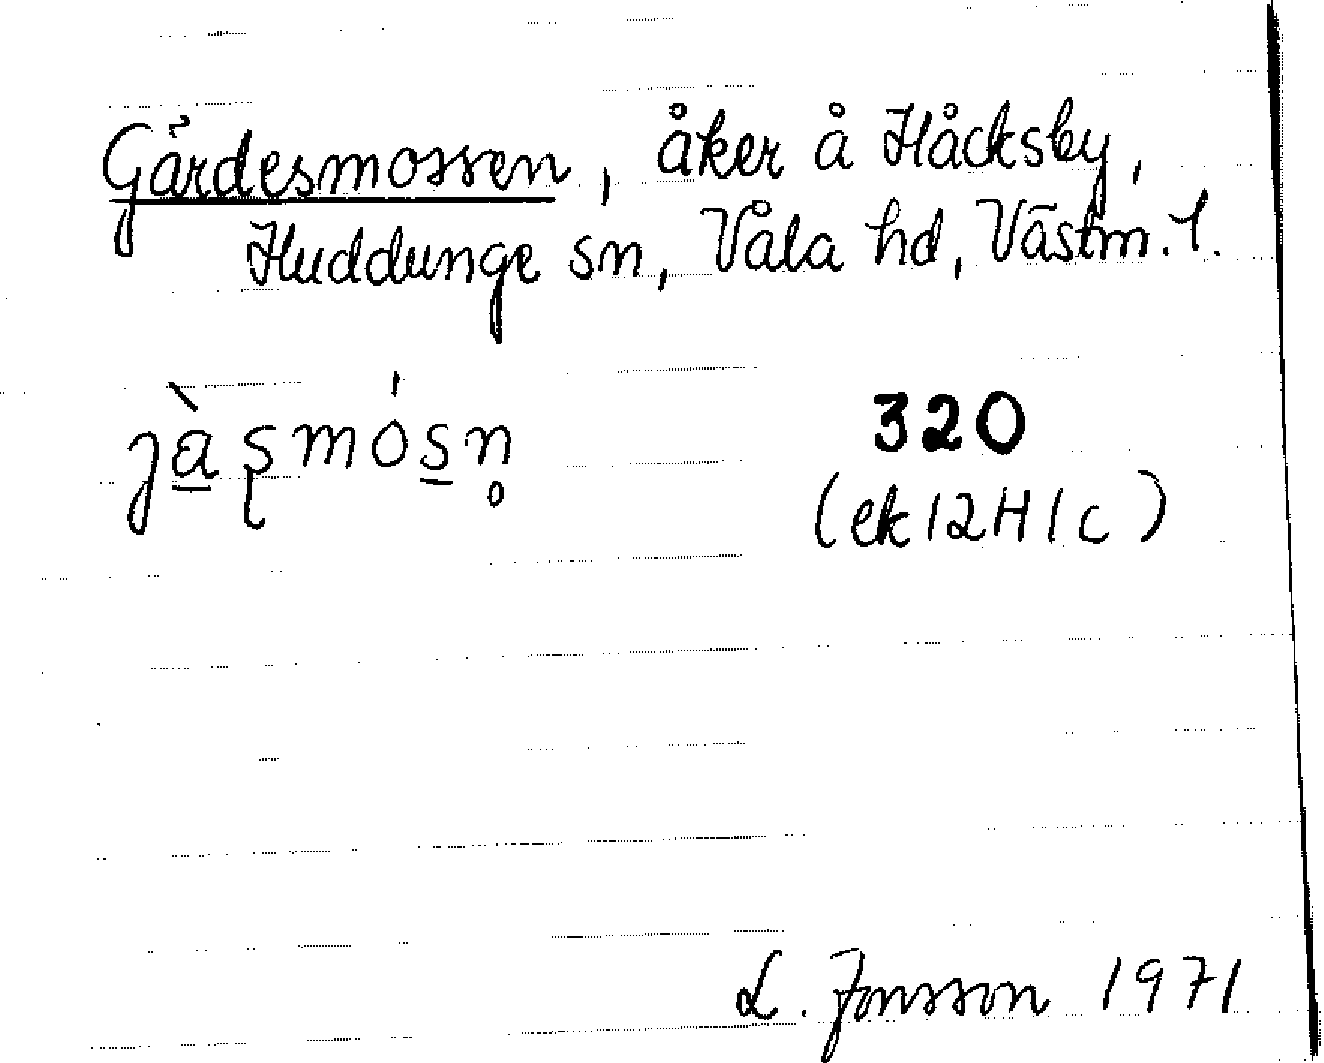 Gärdesmossen, åker å Håcksby,
Huddunge sn, Våla hd, Västm. l.
jàsmósn 320
(ek 12H1c)
L. Jonsson 1971